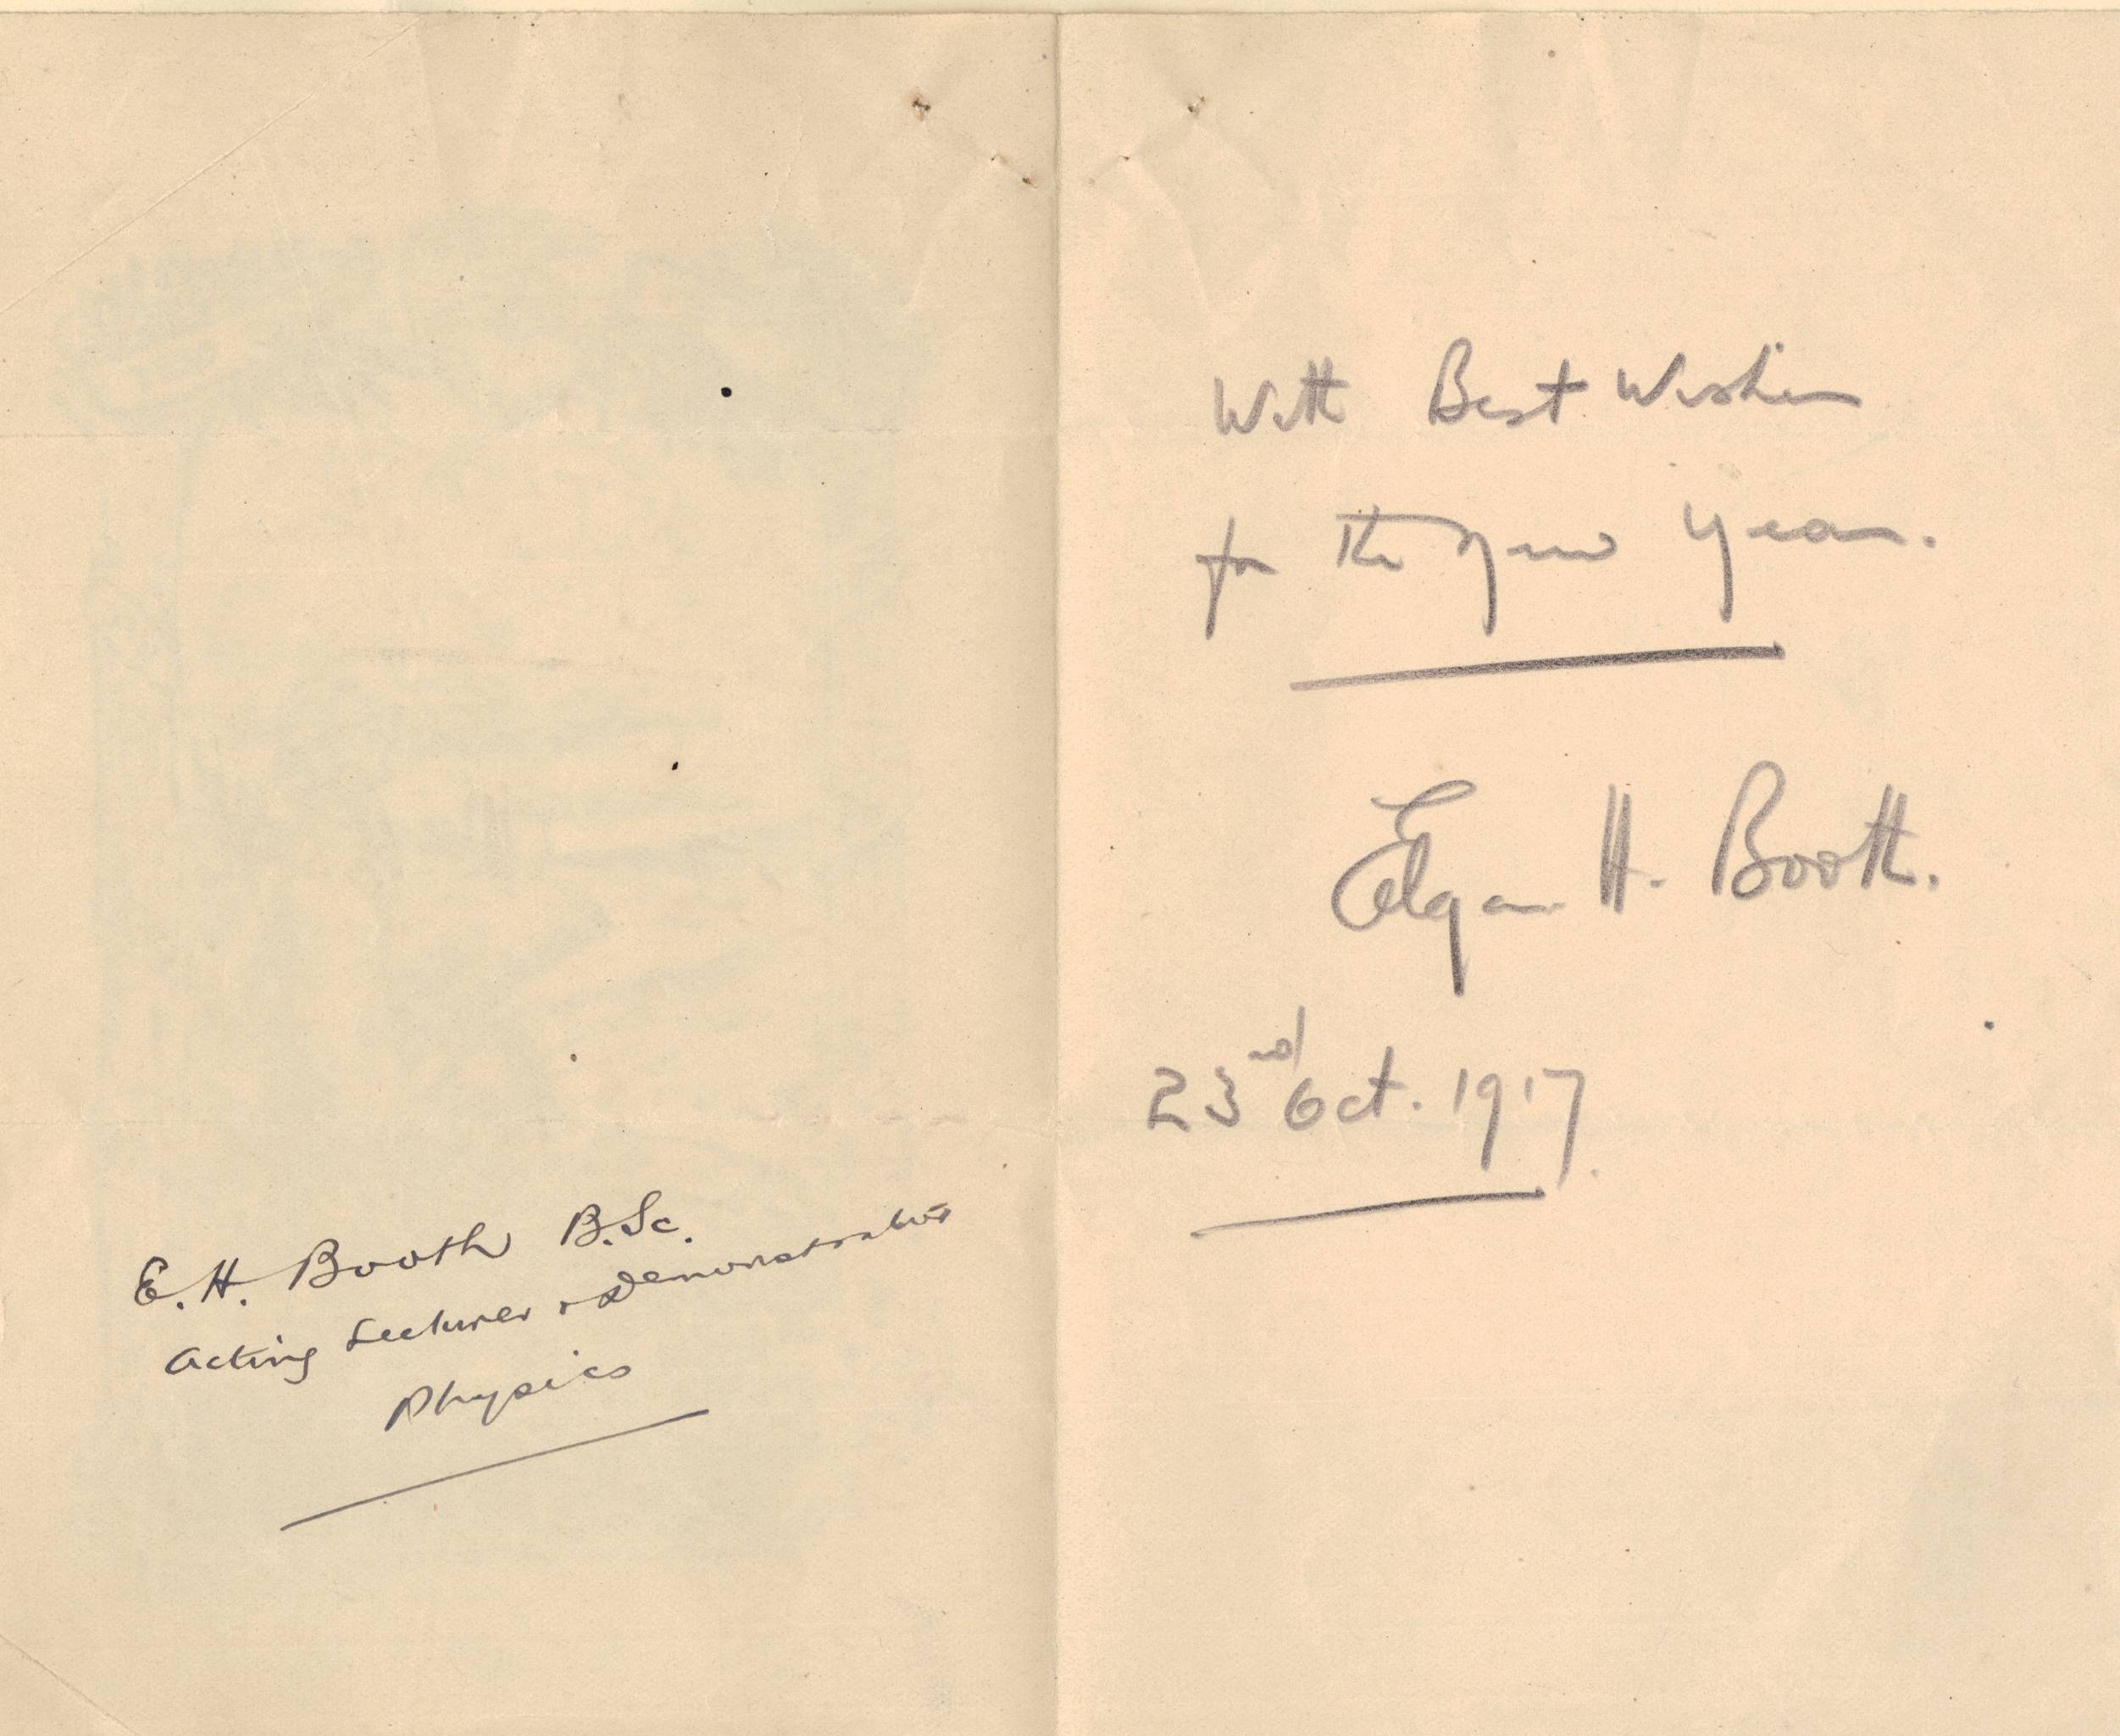 E. H. Booth B.Sc.
Acting Lecturer & Demonstrator
Physics
With Best Wishes
for the New Year.
Edgar H. Booth.
23rd Oct. 1917.